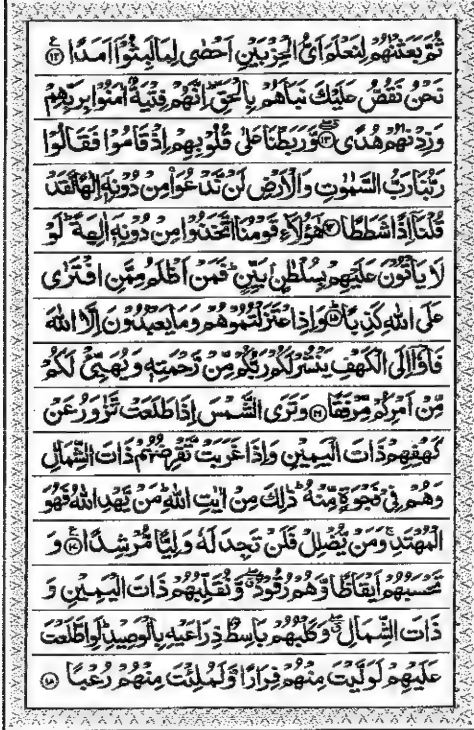 ثُمَّ بَعَثْنٰهُمْ لِنَعْلَمَ اَىُّ الْحِزْبَيْنِ اَحْصٰى لِمَا لَبِثُوْٓا اَمَدًا ۝۱۲
نَحْنُ نَقُصُّ عَلَيْكَ نَبَاَهُمْ بِالْحَقِّ ؕ اِنَّهُمْ فِتْيَةٌ اٰمَنُوْا بِرَبِّهِمْ
وَزِدْنٰهُمْ هُدًى ۝۱۳ وَّرَبَطْنَا عَلٰى قُلُوْبِهِمْ اِذْ قَامُوْا فَقَالُوْا
رَبُّنَا رَبُّ السَّمٰوٰتِ وَالْاَرْضِ لَنْ نَّدْعُوَا۟ مِنْ دُوْنِهٖٓ اِلٰهًا لَّقَدْ
قُلْنَآ اِذًا شَطَطًا ۝۱۴ هٰٓؤُلَآءِ قَوْمُنَا اتَّخَذُوْا مِنْ دُوْنِهٖٓ اٰلِهَةً ؕ لَوْ
لَا يَاْتُوْنَ عَلَيْهِمْ بِسُلْطٰنٍۭ بَيِّنٍ ؕ فَمَنْ اَظْلَمُ مِمَّنِ افْتَرٰى
عَلَى اللّٰهِ كَذِبًا ۝۱۵ وَاِذِ اعْتَزَلْتُمُوْهُمْ وَمَا يَعْبُدُوْنَ اِلَّا اللّٰهَ
فَاْوٗٓا اِلَى الْكَهْفِ يَنْشُرْ لَكُمْ رَبُّكُمْ مِّنْ رَّحْمَتِهٖ وَيُهَيِّئْ لَكُمْ
مِّنْ اَمْرِكُمْ مِّرْفَقًا ۝۱۶ وَتَرَى الشَّمْسَ اِذَا طَلَعَتْ تَّزٰوَرُ عَنْ
كَهْفِهِمْ ذَاتَ الْيَمِيْنِ وَاِذَا غَرَبَتْ تَّقْرِضُهُمْ ذَاتَ الشِّمَالِ
وَهُمْ فِيْ فَجْوَةٍ مِّنْهُ ؕ ذٰلِكَ مِنْ اٰيٰتِ اللّٰهِ ؕ مَنْ يَّهْدِ اللّٰهُ فَهُوَ
الْمُهْتَدِ ۚ وَمَنْ يُّضْلِلْ فَلَنْ تَجِدَ لَهٗ وَلِيًّا مُّرْشِدًا ۝۱۷ وَ
تَحْسَبُهُمْ اَيْقَاظًا وَّهُمْ رُقُوْدٌ ۖ وَّنُقَلِّبُهُمْ ذَاتَ الْيَمِيْنِ وَ
ذَاتَ الشِّمَالِ ۖ وَكَلْبُهُمْ بَاسِطٌ ذِرَاعَيْهِ بِالْوَصِيْدِ ؕ لَوِ اطَّلَعْتَ
عَلَيْهِمْ لَوَلَّيْتَ مِنْهُمْ فِرَارًا وَّلَمُلِئْتَ مِنْهُمْ رُعْبًا ۝۱۸